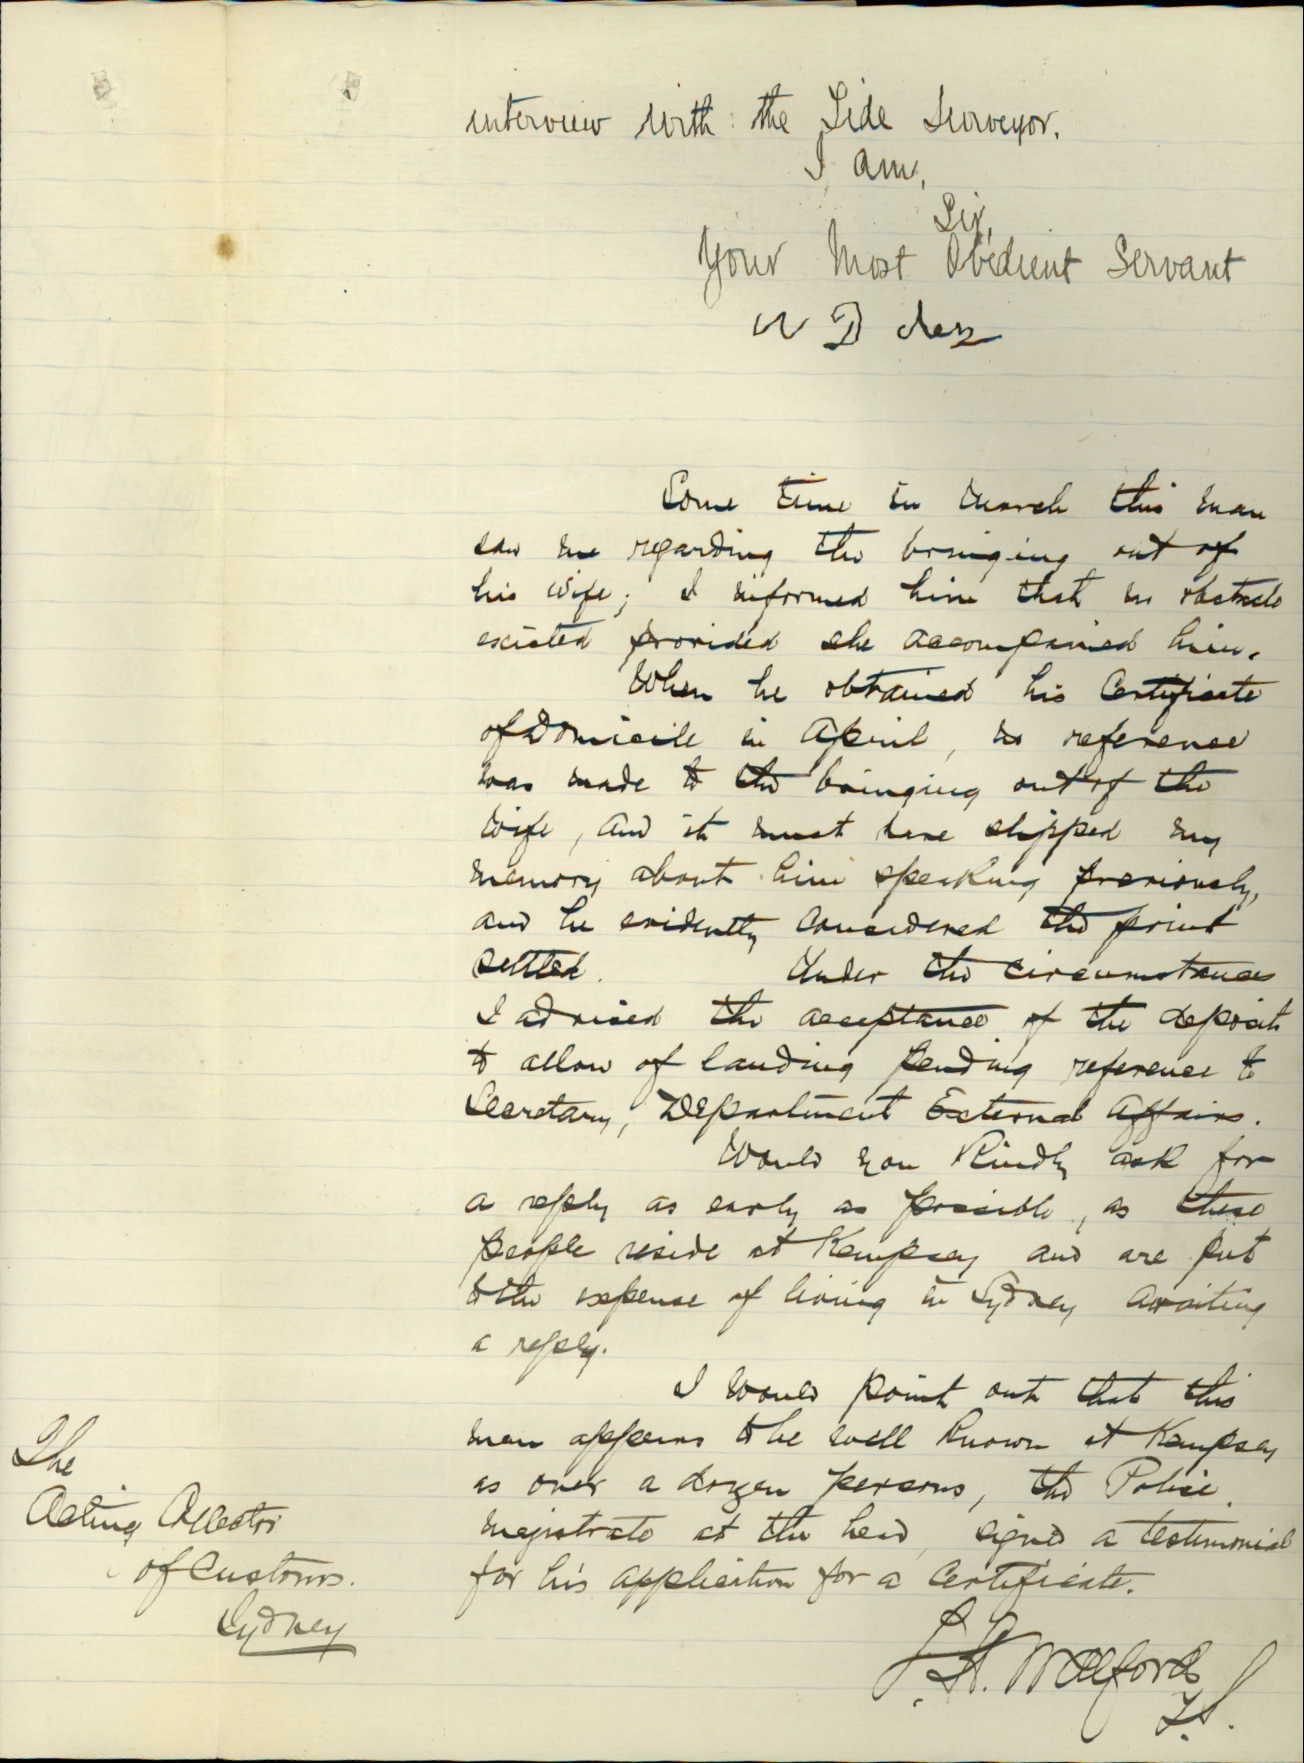 interview with the Tide Surveyor.
I am,
Sir,
Your Most Obedient Servant
W D
Some time in March this man
saw me regarding the bringing out of
his wife; I informed him that no obstacle
existed provided she accompanied him.
When he obtained his Certificate
of Domicile in April, no reference
was made to the bringing out of the
wife, and it must have slipped my
memory about him speaking previously,
and he evidently considered the point
settled. Under the circumstances
I advised the acceptance of the deposit
to allow of landing pending reference to
Secretary, Department External Affairs.
Would you Kindly ask for
a reply as early as possible, as these
people reside at Kempsey and are put
to the expense of living in Sydney awaiting
a reply.
I would point out that this
man appears to be well known at Kempsey
as over a dozen persons, the Police
Magistrate at the head, signed a testimonial
for his application for a Certificate.
The
Acting Collector
of Customs.
Sydney
T.S.